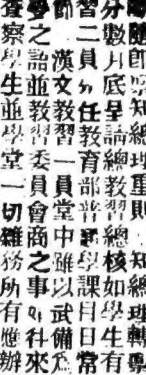 隨即知總理重則 知總理轉票
分數月底呈請總教習總核如學生有
習二員分任教育部普學課目日常
漢文教習一員堂中雖以武備為
之語並教習委員會商之事往來
查察學生並學堂一切雜務所有應辦